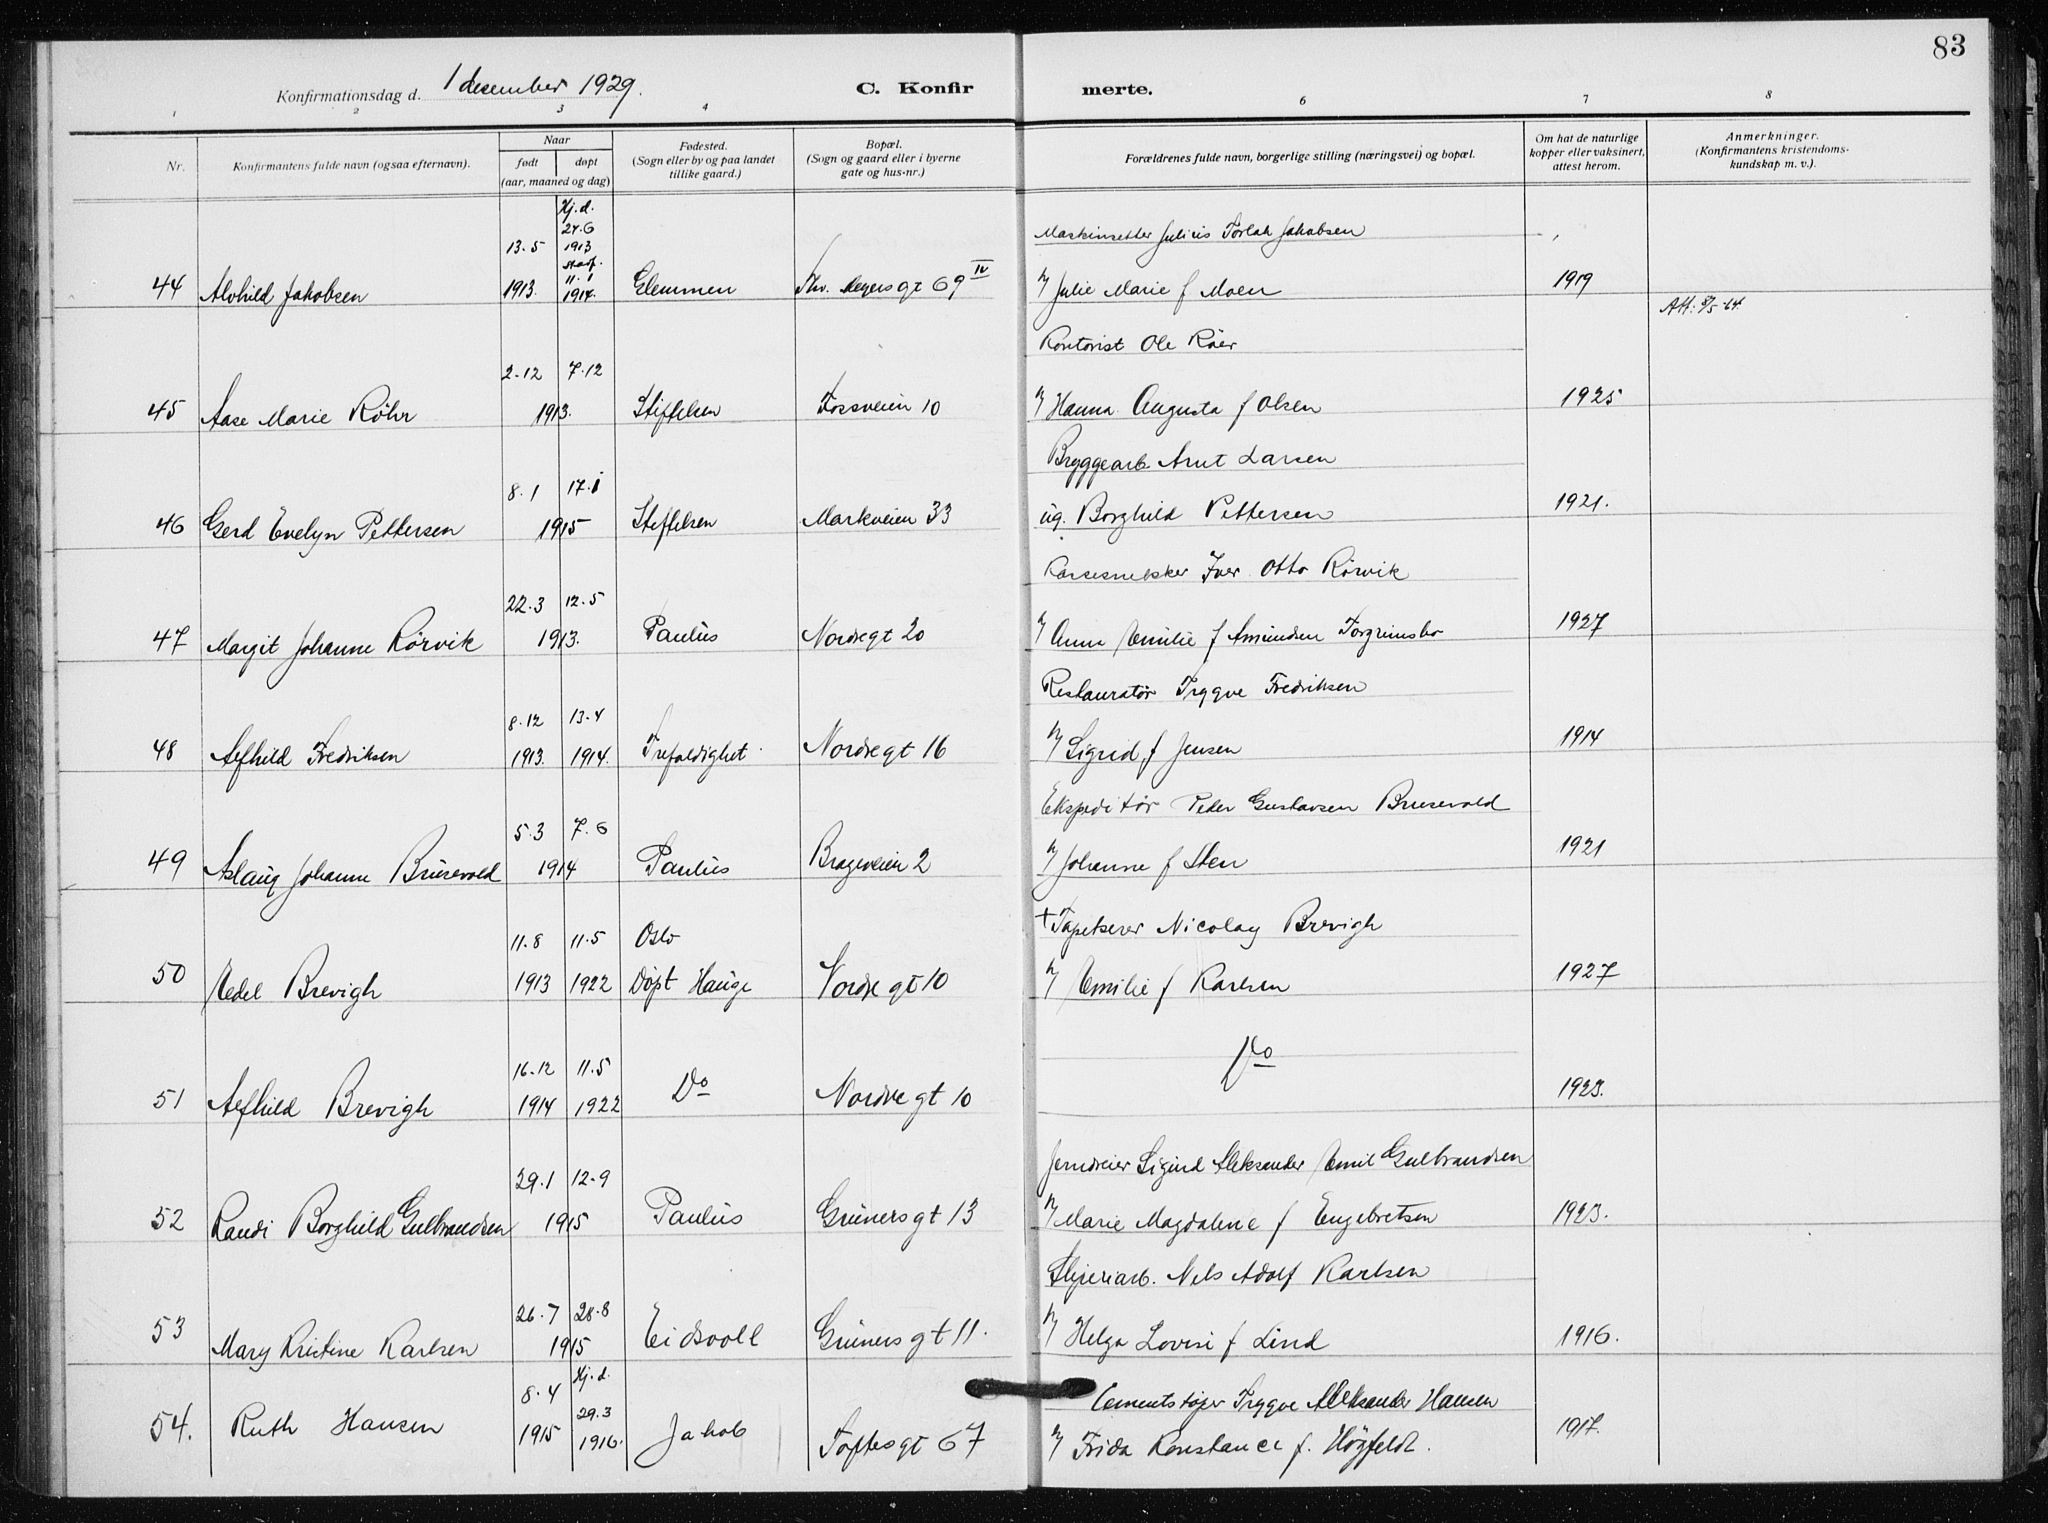 83
Konfirmationsdag d. 1 desember 1929.
C. Konfir merte.
1 2 3 4 6 7 8
Nr.
Konfirmantens fulde navn (ogsaa efternavn).
Naar
født døpt
(aar, maaned og dag)
Fødested.
(Sogn eller by og paa landet
tillike gaard.)
Bopæl.
(Sogn og gaard eller i byerne
gate og hus-nr.)
Forældrenes fulde navn, borgerlige stilling (næringsvei) og bopæl.
Om hat de naturlige
kopper eller vaksinert,
attest herom.
Anmerkninger.
(Konfirmantens kristendoms-
kundskap m. v.).
Hj.d.
24.6
13.5 1913 Maskinsetter Julius Torlah Jakobsen
stadf.
11.1
44 Alvhild Jakobsen 1913. 1914. Glemmen Thv. Meyersgt 69 IV Julie Marie f Moen 1919
Att: 8/5-64.
Kontorist Ole Röer
2-12 7.12
45 Aase Marie Röhr 1913. Stiftelsen Fossveien 10 Hanna Augusta f Olsen 1925
Bryggearb Arnt Larsen
8.1 17.1
46 Gerd Evelyn Pettersen 1915 Stiftelsen Markveien 33 ug. Borghild Pettersen 1921.
Iver Otto Rörvik
22.3 12.5
47 Margit Johanne Rörvik 1913. Paulus Nordregt 20 Anna Emilie f Amundsen Torgrimsbo 1927
Restauratör Trygve Fredriksen
8.12 13.4
48 Alfhild Fredriksen 1913. 1914. Trefoldighet Nordregt 16 Sigrid f Jensen 1914
Ekspeditör Peder Gustavsen Brusevold
5.3 7.6
49 Aslaug Johanne Brusevold 1914 Paulus Brageveien 2 Johanne f Sten 1921
11.8 11.5 Oslo + Tapetserer Nicolay Brevigh
50 Vedel Brevigh 1913 1922 Döpt Hauge Nordregt 10 Emilie f Karlsen 1927
16-12 11.5 Do
51 Alfhild Brevigh 1914 1922 Do Nordregt 10 1923.
29.1 12.9 Jerndreier Sigurd Aleksander Emil Gulbrandsen
52 Randi Borghild Gulbrandsen 1915 Paulus Grünersgt 13 Marie Magdalene f Engebretsen 1923.
Sliperiarb. Nils Adolf Karlsen
26.7 28.8
53 Mary Kristine Karlsen 1915 Eidsvoll Grünersgt 11. Helga Lovise f Lind 1916.
8.4 Hj.d. Cementstöper Trygve Aleksander Hansen
29.3
54. Ruth Hansen 1915 1916. Jakob Toftesgt 67 Frida Konstance f. Högfeldt. 1917.